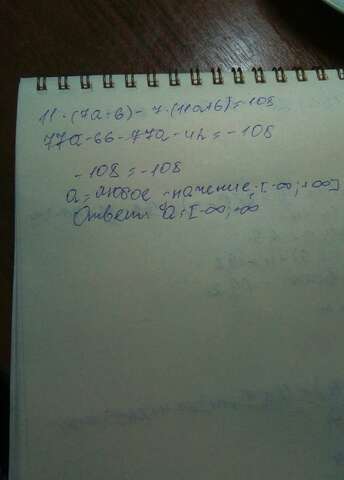 11·(7a-6)-7·(11a+6)=-108
77a-66-77a-42=-108
-108=-108
a=любое значение·[-∞;+∞]
Ответ: a=[-∞;+∞